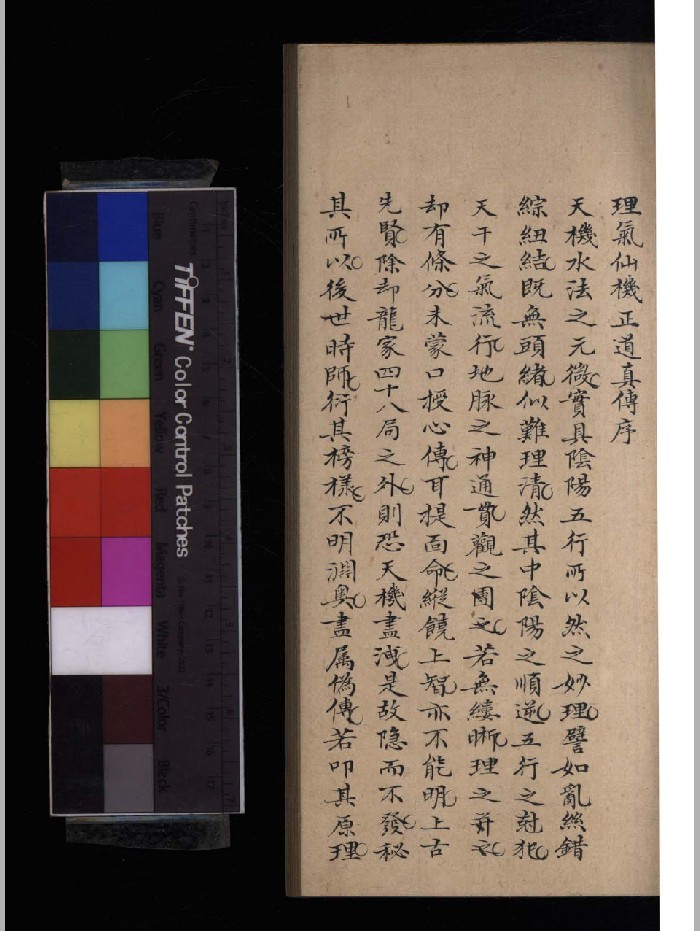 理氣仙機正道真傳序
天機水法之元微實具陰陽五行所以然之妙理譬如亂絲錯
綜紐結既無頭緒似難理清然其中陰陽之順逆五行之尅犯
天干之氣流行地脉之神通貫觀之圖之若無縷晰理之井之
却有條分未蒙口授心傳耳提面命縱饒上智亦不能明上古
先賢除却龍家四十八局之外則恐天機盡洩是故隐而不發秘
其所以後世時師衍其榜樣不明淵奥盡属偽傳若叩其原理
TIFFEN Color Control Patches
Blue
Cyan
Green
Yellow
Red
Magenta
White
3/Color
Black